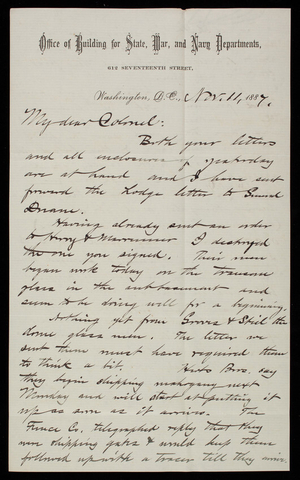 Office of Building for State, War, and Navy Departments,
613 SEVENTEENTH STREET,
Washington, D.C., Nov. 11, 1887.
My dear Colonel:
Both your letters
and all enclosures of yesterday
are at hand and I have sent
forward the Hodge letter to General
Duane.
Having already sent an order
to & I destroyed
the one you signed. Their men
began work today on the
glass in the subbasement and
seem to be doing well for a beginning.
Nothing yet from & the
dome glass men. The letter we
sent them must have required them
to think a bit. Bros. say
they begin shipping mahogany next
Monday and will start at putting it
up as soon as it arrives. The
Fence Co. telegraphed reply that they
were shipping gates & would keep them
followed up with a tracer till they